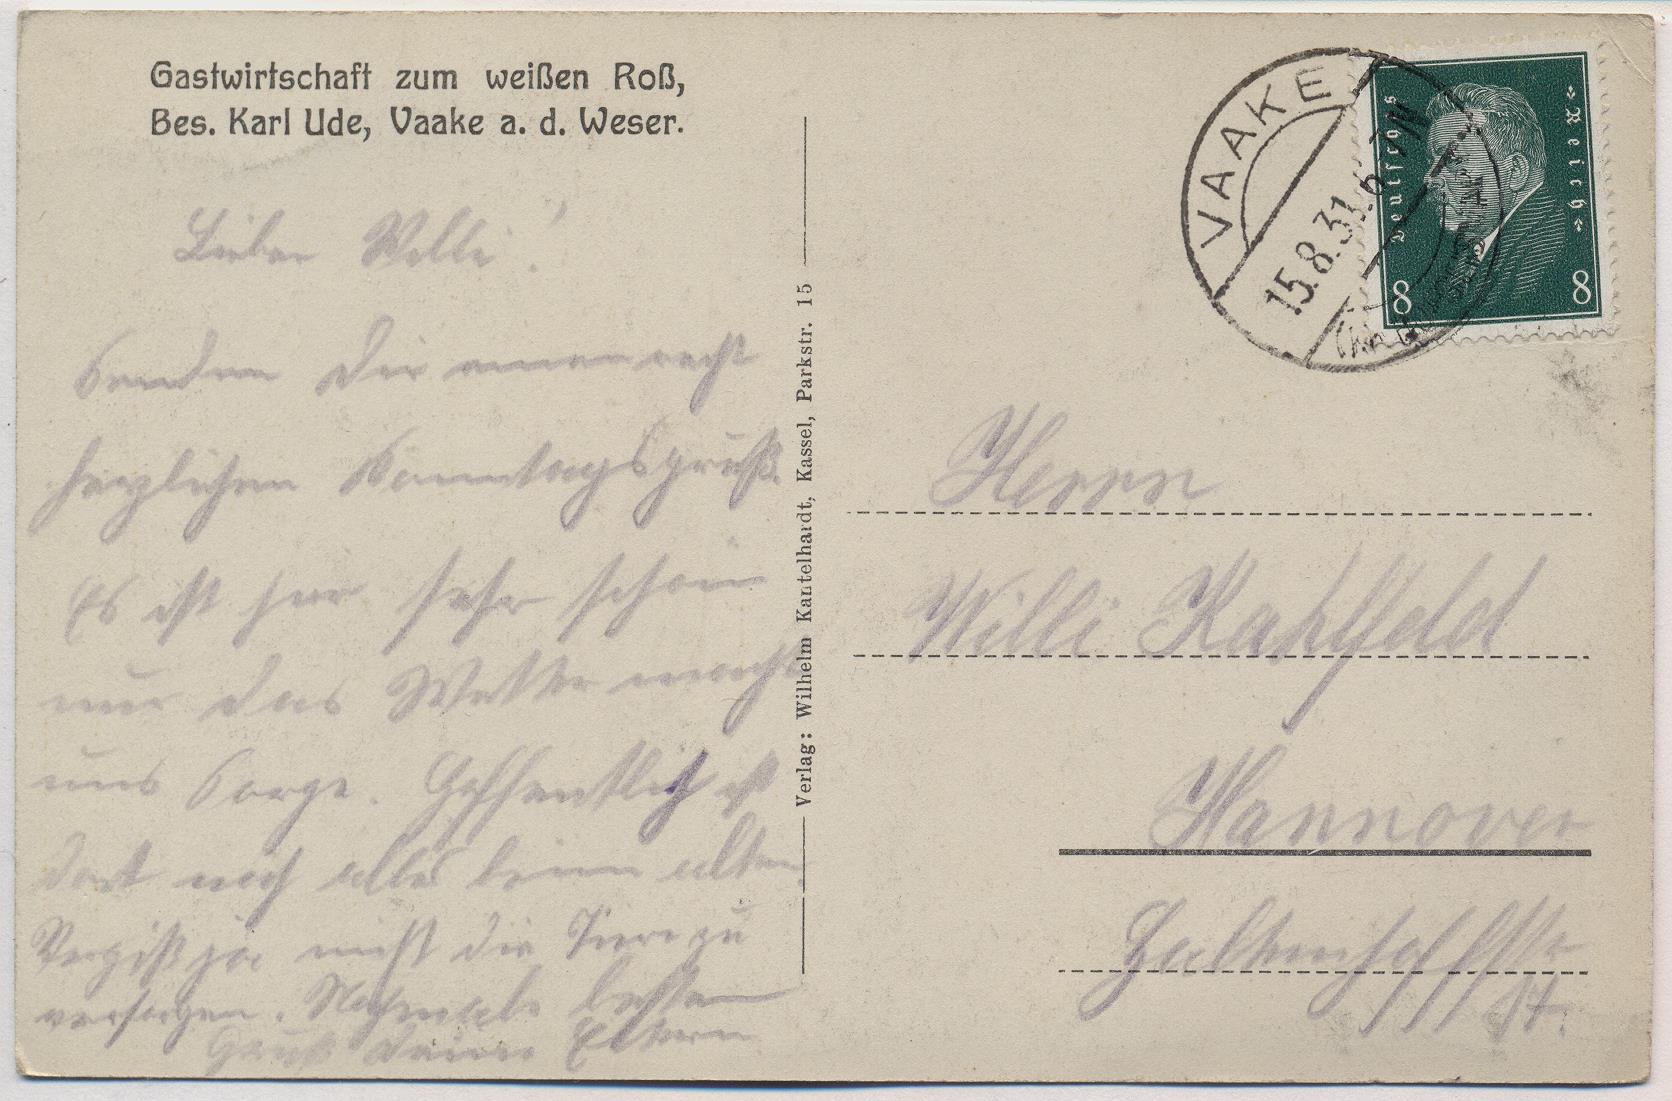 Gastwirtschaft zum weißen Roß,
Bes. Karl Ude, Vaake a. d. Weser.
Lieber Willi!
Senden Dir einen recht
herzlichen Sonntagsgruß.
Es ist hier sehr schön
nur das Wetter macht
uns Sorge. Hoffentlich ist
dort noch alles beim alten.
Vergiß ja nicht die Tiere zu
versorgen. Nochmals besten
Gruß Deine Eltern
Verlag: Wilhelm Kantelhardt, Kassel, Parkstr. 15
VAAKE
15.8.31. 6-7N
Deutsches Reich
8 8
Herrn
Willi Kahlfeld
Hannover